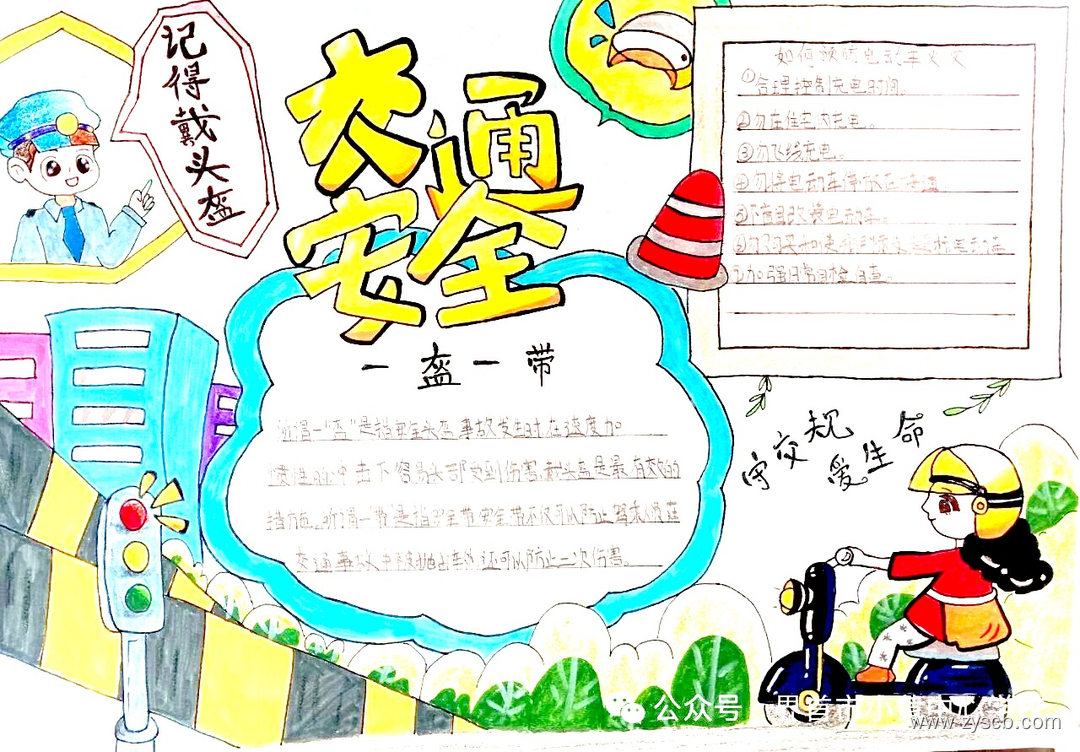 记得戴头盔
交通
安全
一盔一带
所谓一"盔"是指安全头盔,事故发生时在速度加
惯性的冲击下容易头部受到伤害,戴头盔是最有效的
措施。所谓一带是指安全带,安全带不仅可以防止驾乘人员在
交通事故中被抛出车外,还可以防止二次伤害。
如何预防电动车火灾
①合理控制充电时间。
②勿在住宅内充电。
③勿飞线充电。
④勿将电动车停放在
⑤不盲目改装电动车。
⑥勿购买
⑦加强日常自检自查。
守交规
爱生命
公众号
www.zyscb.com